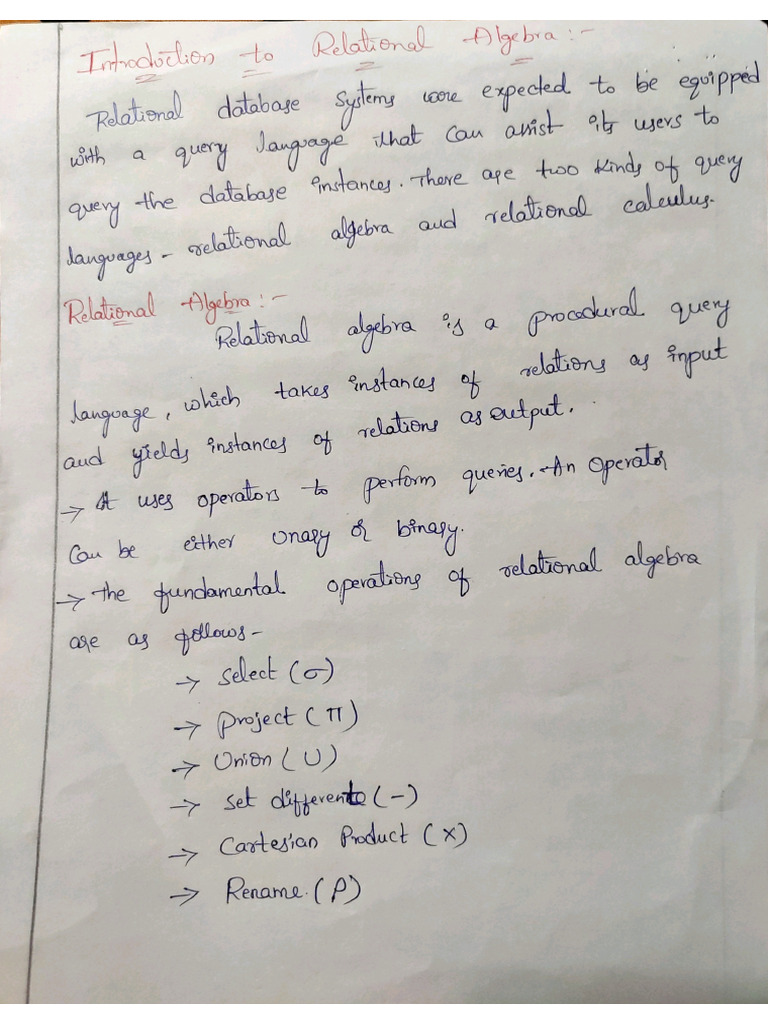 Introduction to Relational Algebra:-
Relational database systems were expected to be equipped
with a query language that can assist its users to
query the database instances. There are two kinds of query
languages - relational algebra and relational calculus.
Relational Algebra:-
Relational algebra is a procedural query
language, which takes instances of relations as input
and yields instances of relations as output.
→ It uses operators to perform queries. An Operator
Can be either unary or binary.
→ The fundamental operations of relational algebra
are as follows-
→ Select (σ)
→ Project (π)
→ Union (∪)
→ Set different (-)
→ Cartesian Product (×)
→ Rename. (ρ)